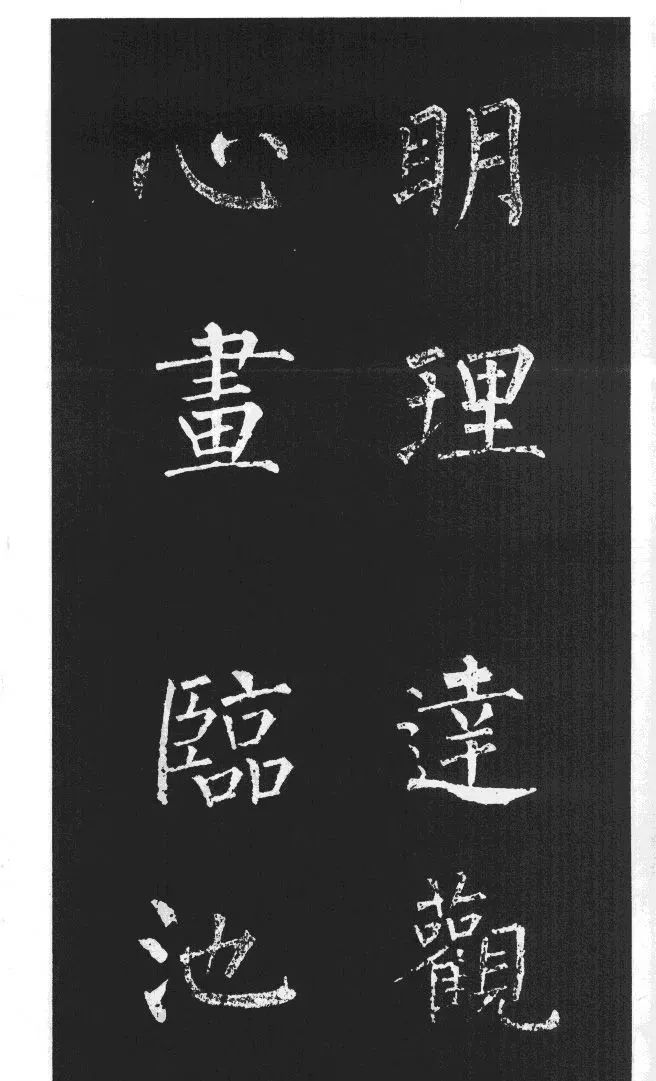 明理達觀
心畫臨池